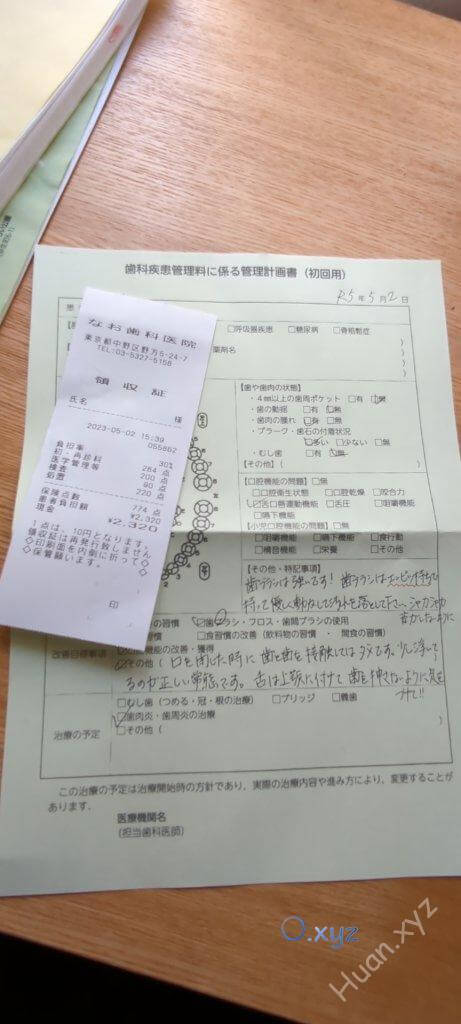 歯科疾患管理料に係る管理計画書（初回用）
R5年5月2日
□呼吸器疾患 □糖尿病 □骨粗鬆症
薬剤名
なお歯科医院
東京都中野区野方5-24-7
TEL:03-5327-5158
領収証
氏名 様
2023-05-02 15:39
055862
負担率 30%
初・再診料 264 点
医学管理等 200 点
検査 90 点
処置 220 点
保険点数 774 点
患者負担額 ¥2,320
現金 ¥2,320
1点は、10円となります。
◇領収証は再発行致しません◇
◇印刷面を内側に折って◇
◇保管願います。◇
印
【歯や歯肉の状態】
・4㎜以上の歯周ポケット □有 □無
・歯の動揺 □有 □無
・歯肉の腫れ □有 □無
・プラーク・歯石の付着状況
□多い □少ない □無
・むし歯 □有 □無
【その他】（ ）
【口腔機能の問題】□無
□口腔衛生状態 □口腔乾燥 □咬合力
□舌口唇運動機能 □舌圧 □咀嚼機能
□嚥下機能
【小児口腔機能の問題】□無
□咀嚼機能 □嚥下機能 □食行動
□構音機能 □栄養 □その他
【その他・特記事項】
歯ブラシは
の習慣 □歯ブラシ・フロス・歯間ブラシの使用
の習慣 □食習慣の改善（飲料物の習慣・間食の習慣）
改善目標事項
機能の改善・獲得
□その他（口を閉じた時に歯と歯を接触してはダメです。少し浮いて
るのが正しい状態です。舌は上顎に付けて歯を押さないように
治療の予定
□むし歯（つめる・冠・根の治療） □ブリッジ □義歯
□歯肉炎・歯周炎の治療
□その他（ ）
この治療の予定は治療開始時の方針であり、実際の治療内容や進み方により、変更することが
あります。
医療機関名
（担当歯科医師）
O.xyz
Huan.xyz